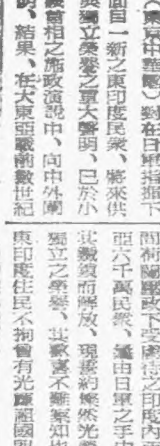 （東京中華電）對在日軍指揮下
面目一新之東印度民衆、將來供
與獨立榮譽之重大聲明、已於小
磯首相之施政演說中、向中外闡
明、結果、在大東亞戰前數世紀
間荷蘭壓政下受虐待之印度內
亞六千萬民衆、遂由日軍之手中
其鎖而解放、現並約獲光
獨立之榮譽、其歡喜不難察知
東印度住民不拘曾有光輝祖國